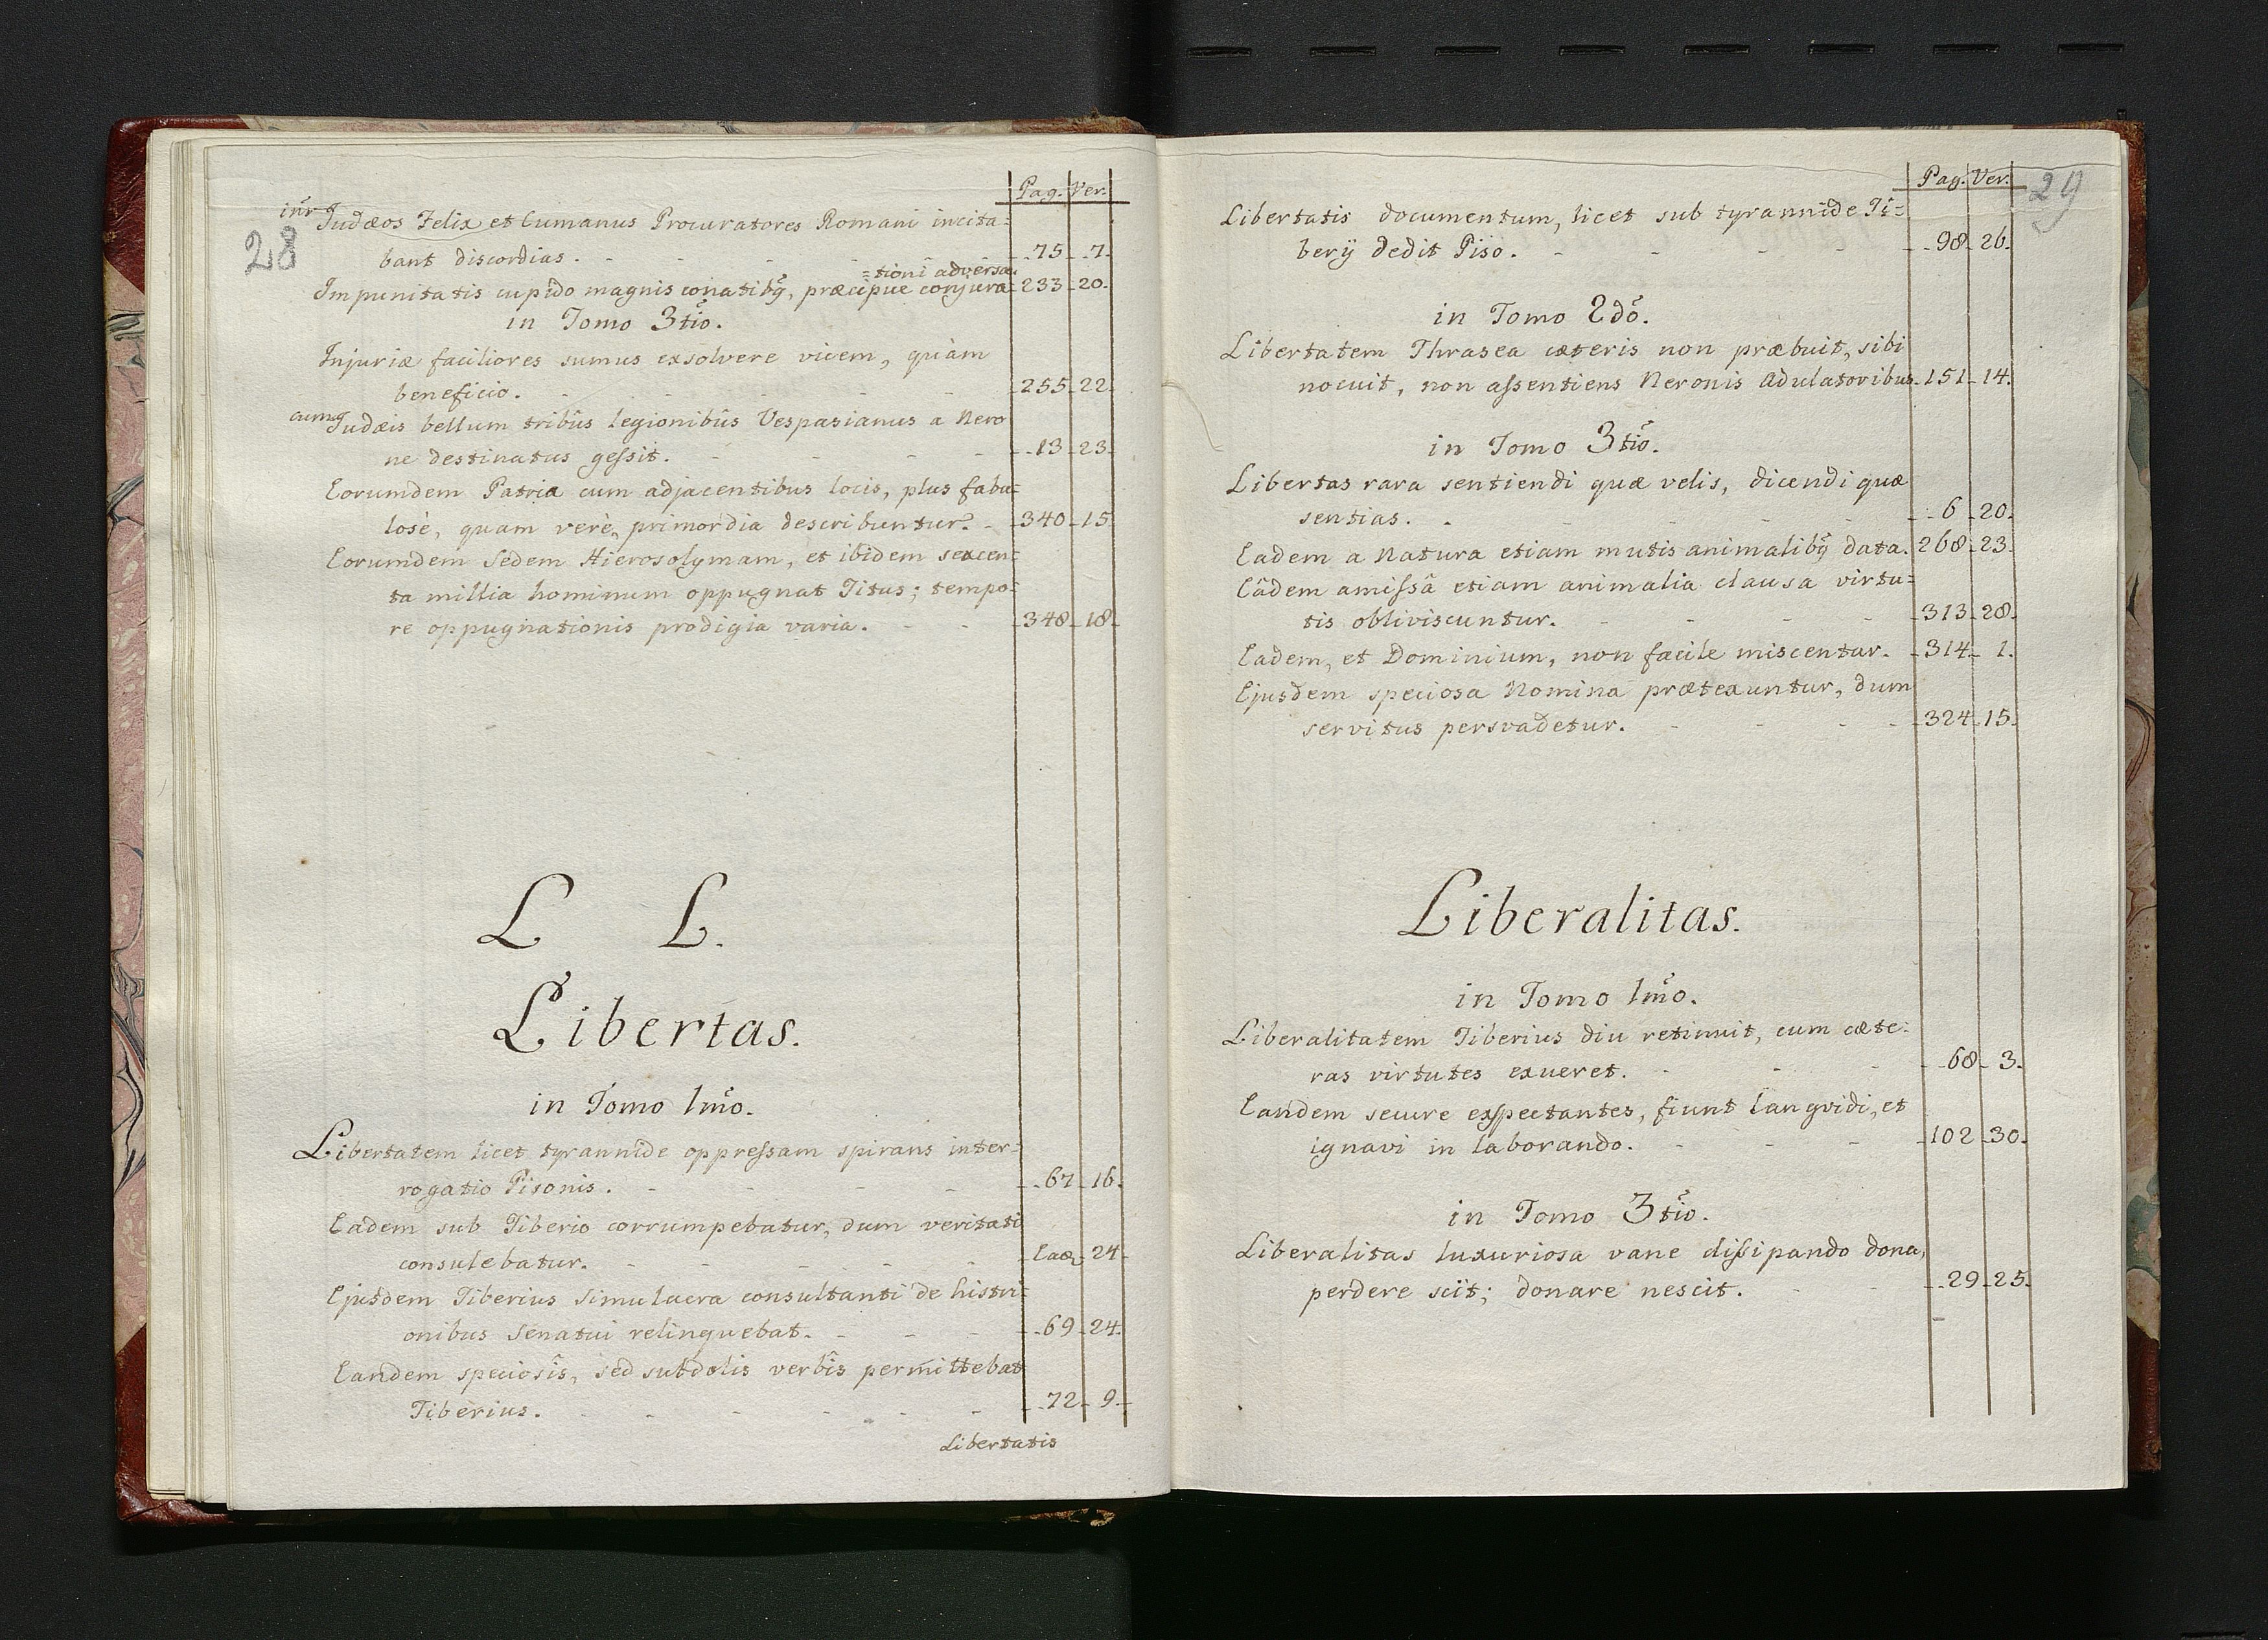 Pag. Ver.
28
inr̃ Judæos Felix et Cumanus Procuratores Romani incita=
bant discordias. - - - - - 75 - 7.
=tioni adversa.
Impunitatis cupido magnis conatibq̃, præcipue conjura= 233 - 20.
in Tomo 3tio.
Injuriæ faciliores sumus exsolvere vicem, quàm
beneficio. - - - - - 255 - 22.
cum Judæis bellum tribûs legionibûs Vespasianus a Nero
ne destinatus geſsit. - - - - 13 - 23.
Eorumdem Patria cum adjacentibus locis, plus fabu=
losè, quam verè, primordia describuntur. - 340 - 15
Eorumdem Sedem Hierosolymam, et ibidem sexcen=
ta millia hominum oppugnat Titus; tempo=
re oppugnationis prodigia varia. - - 348 - 18.
L L.
Libertas.
in Tomo 1mo.
Libertatem licet tyrannide oppreſsam spirans inter=
rogatio Pisonis. - - - - 67 - 16.
Eadem sub Tiberio corrumpebatur, dum veritati
consulebatur. - - - - - Ead. 24.
Ejusdem Tiberius Simulacra consultanti de histri=
onibus Senatui relinquebat. - - - 69 - 24.
Eandem speciosîs, sed subdolis verbîs permittebat
Tiberius. - - - - - 72 - 9.
Libertatis
Pag. Ver.
29
Libertatis documentum, licet sub tyrannide Ti=
berij dedit Piso. - - - - 98 - 26.
in Tomo 2do.
Libertatem Thrasea cæteris non præbuit, sibi
nocuit, non aſsentiens Neronis Adulatoribus. 151 - 14.
in Tomo 3tio.
Libertas rara sentiendi quæ velis, dicendi quæ
sentias. - - - - - 6 - 20.
Eadem a Natura etiam mutis animalibq̃ data. 268 - 23.
Eâdem amiſsâ etiam animalia clausa virtu=
tis obliviscuntur. - - - - 313 - 28.
Eadem, et Dominium, non facile miscentur. - 314 - 1.
Ejusdem speciosa Nomina prætexuntur, dum
servitus persvadetur. - - - - 324 - 15.
Liberalitas.
in Tomo 1mo.
Liberalitatem Tiberius diu retinuit, cum cæte=
ras virtutes exueret. - - - - 68 - 3.
Eandem secure exſpectantes, fiunt langvidi, et
ignavi in laborando. - - - 102 - 30.
in Tomo 3tio.
Liberalitas luxuriosa vane diſsipando dona,
perdere scit; donare nescit. - - - 29 - 25.